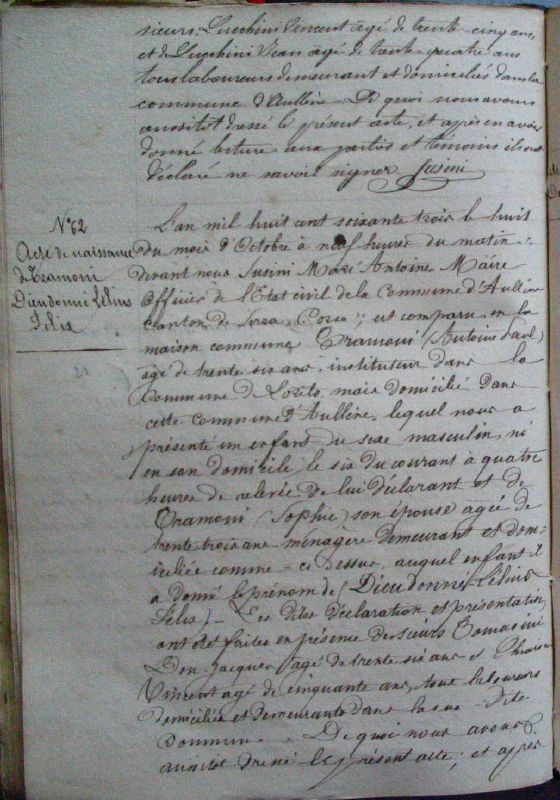 sieurs, Lucchini Vincent agé de trente-cinq ans,
et de Lucchini Jean agé de trente-quatre ans
tous laboureurs demeurant et domiciliés dans la
commune d'Aullène. De quoi nous avons
aussitot dressé le présent acte, et après en avoir
donné lecture aux parties et témoins ils ont
déclaré ne savoir signer Susini
N° 62
Acte de naissance
de Tramoni
Dieudonné Lélius
Félix
L'an mil huit cent soixante trois le huit
du mois d'Octobre à neuf heures du matin
devant nous Susini Marc Antoine Maire
Officier de l'Etat civil de la Commune d'Aullène
Canton de Serra, Corse; est comparu en la
maison commune Tramoni (Antoine Paul)
agé de trente six ans, instituteur dans la
Commune de Loreto, mais domicilié dans
cette commune d'Aullène, lequel nous a
présenté un enfant du sexe masculin né
en son domicile le six du courant à quatre
heures de relevée de lui déclarant et de
Tramoni (Sophie) son épouse agée de
trente trois ans ménagère demeurant et dom-
iciliée comme ci-dessus, auquel enfant il
a donné le prénom de (Dieudonné Lélius
Félix). Les dites déclaration et présentation
ont été faites en présence des sieurs Tomasini
Don Jacques agé de trente six ans et
Vincent agé de cinquante ans, tout laboureurs
domiciliés et demeurants dans la sus-dite
Commune. De quoi nous avons
aussitot dressé le présent acte; et après